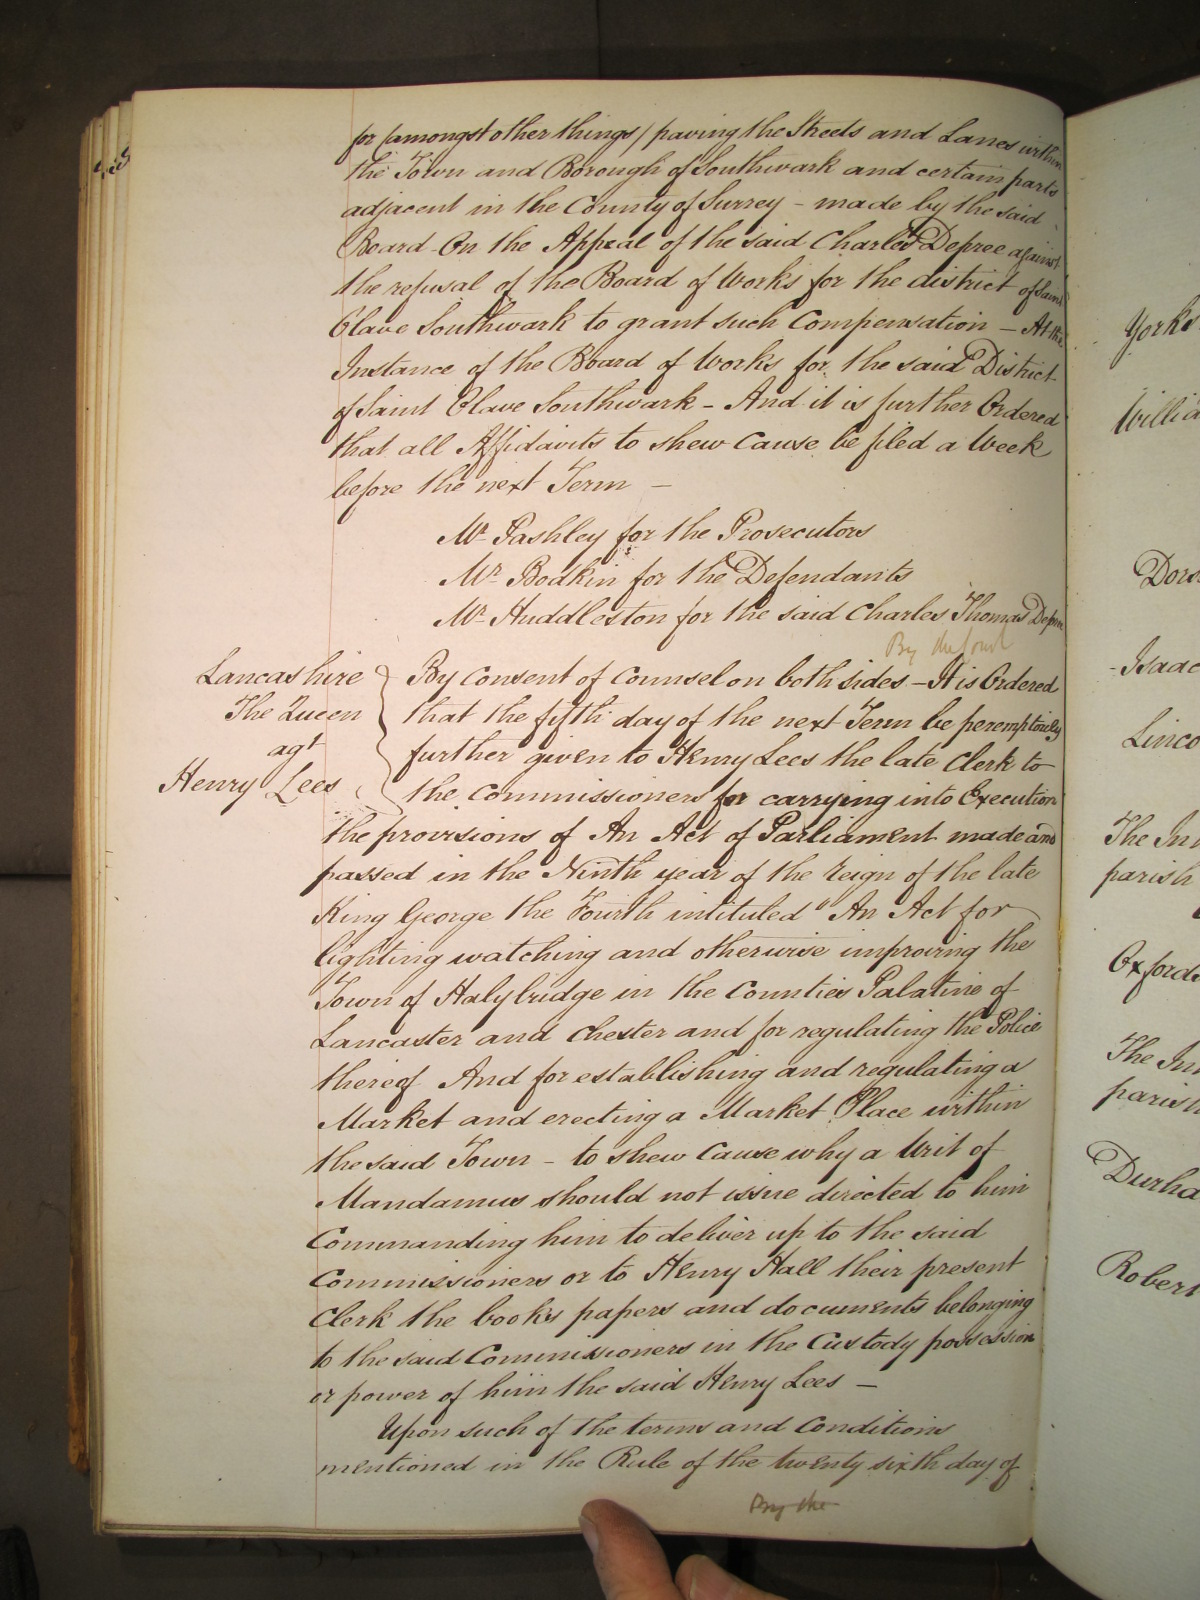 for (amongst other things) paving the Streets and Lanes within
the Town and Borough of Southwark and certain parts
adjacent in the County of Surrey - made by the said
Board - On the Appeal of the said Charles Depree against
the refusal of the Board of Works for the district of Saint
Olave Southwark to grant such Compensation - At the
Instance of the Board of Works for the said District
of Saint Olave Southwark - And it is further Ordered
that all Affidavits to shew Cause be filed a Week
before the next Term -
Mr Pashley for the Prosecutors
Mr Bodkin for the Defendants
Mr Huddleston for the said Charles Thomas Depree
By the Court
Lancashire
The Queen
agt
Henry Lees
By Consent of Counsel on both sides - It is Ordered
that the fifth day of the next Term be peremptorily
further given to Henry Lees the late Clerk to
the Commissioners for carrying into Execution
the provisions of An Act of Parliament made and
passed in the Ninth year of the reign of the late
King George the Fourth intituled "An Act for
lighting watching and otherwise improving the
Town of Stalybridge in the Counties Palatine of
Lancaster and Chester and for regulating the Police
thereof And for establishing and regulating a
Market and erecting a Market Place within
the said Town - to shew Cause why a Writ of
Mandamus should not issue directed to him
Commanding him to deliver up to the said
Commissioners or to Henry Hall their present
Clerk the books papers and documents belonging
to the said Commissioners in the Custody possession
or power of him the said Henry Lees -
Upon such of the terms and Conditions
mentioned in the Rule of the twenty sixth day of
By the
Isaac
The
parish
The
parish